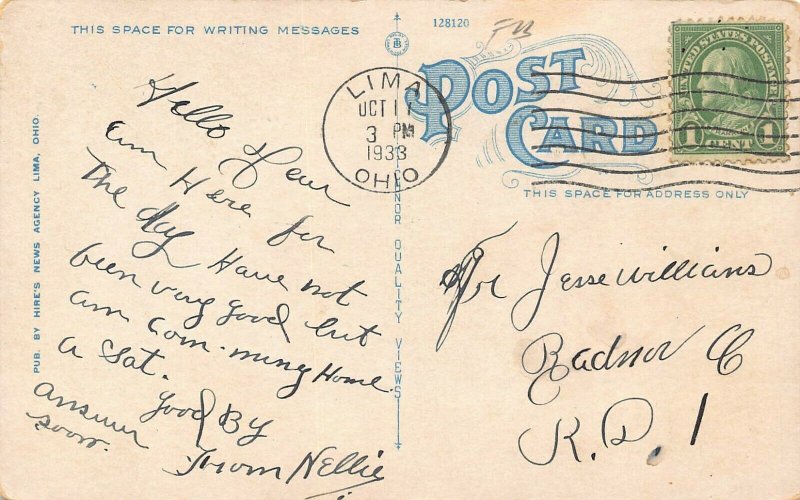 THIS SPACE FOR WRITING MESSAGES
128120
FB
POST
CARD
THIS SPACE FOR ADDRESS ONLY
UNITED STATES POSTAGE
1 CENT 1
LIMA
OCT 17
3 PM
1933
OHIO
PUB. BY HIRE'S NEWS AGENCY LIMA, OHIO.
QUALITY VIEWS
Hello Dear
am Here for
The day Have not
been very good but
am com-ming Home
a Sat.
good By
answer
soon.
From Nellie
Jesse Williams
Radnor O
R. D. 1